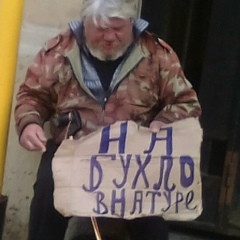 НА
БУХЛО
ВНАТУРЕ